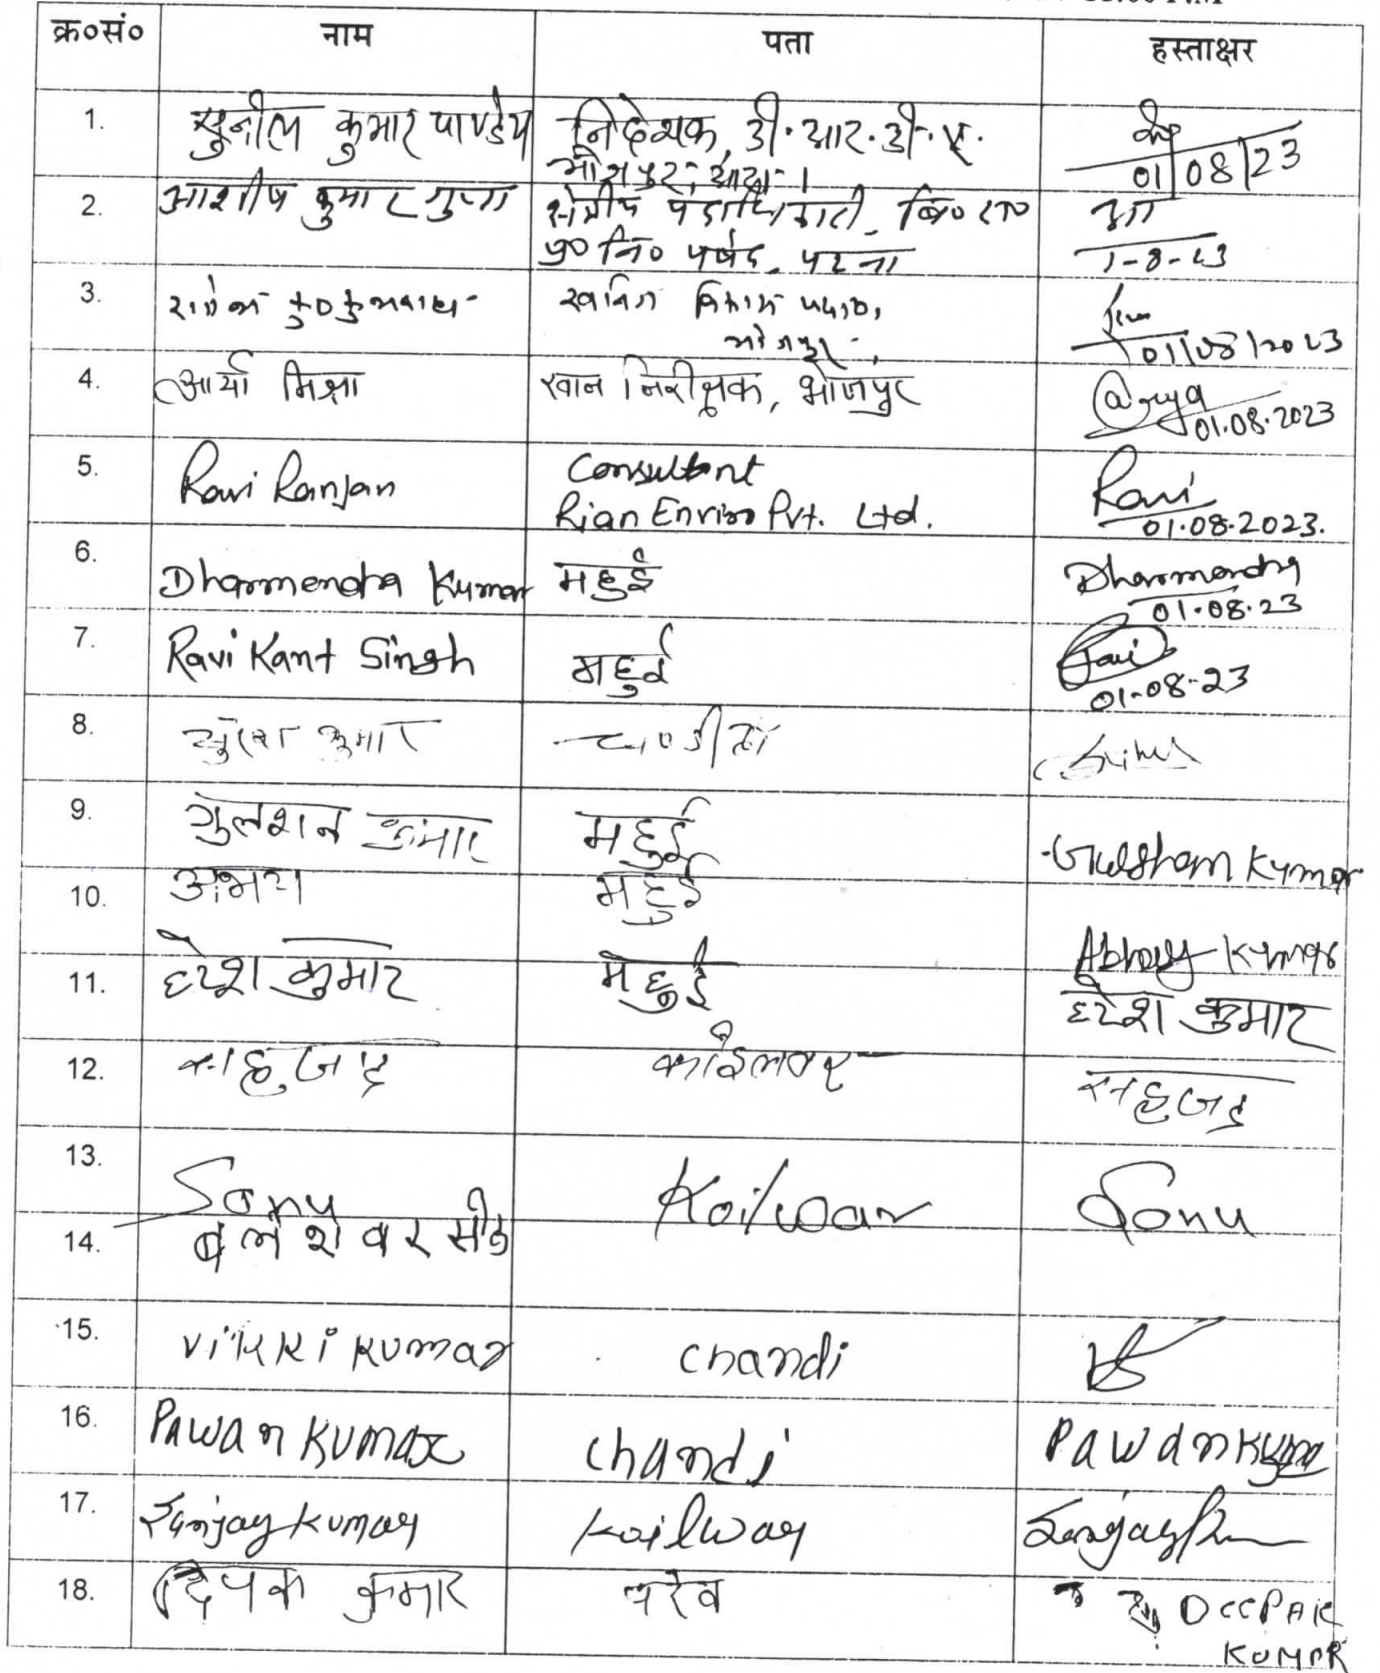 क्र०सं० नाम पता हस्ताक्षर
1. सुनील कुमार पाण्डेय निदेशक, डी.आर.डी.ए.
भोजपुर, आरा। 01/08/23
2. आशीष कुमार गुप्ता क्षेत्रीय पदाधिकारी, बि० रा०
प्र० नि० पर्षद, पटना 1-8-23
3. खनिज विकास पदा०,
भोजपुर 01/08/2023
4. आर्या मिश्रा खान निरीक्षक, भोजपुर @rya
01.08.2023
5. Ravi Ranjan Consultant Ravi
Rian Enviro Pvt. Ltd. 01.08.2023.
6. Dharmendra Kumar महुई Dharmendra
01.08.23
7. Ravi Kant Singh महुई Ravi
01-08-23
8. कुमार
9. गुलशन कुमार महुई Gulshan Kumar
10. अभय महुई Abhay Kumar
11. हरेश कुमार महुई हरेश कुमार
12. कोईलवर
13. Sonu Koilwar Sonu
14. बलेशेवर सींह
15. Vikki Kumar Chandi
16. Pawan Kumar Chandi Pawan Kumar
17. Sanjay Kumar Koilwar Sanjay
18. दिपक कुमार परेव DEEPAK
KUMAR